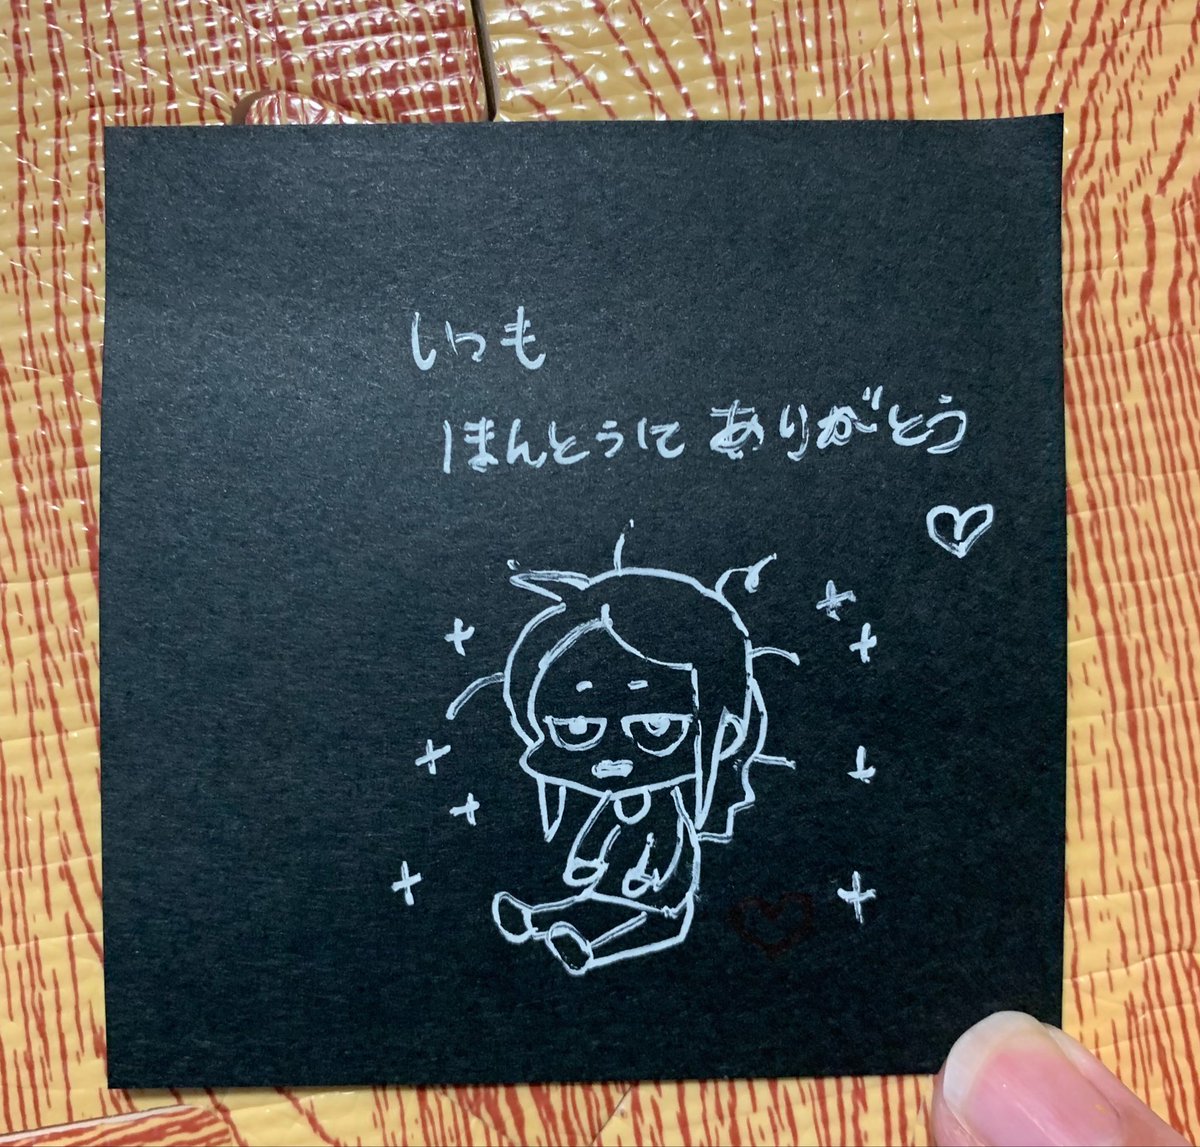 いつも
ほんとうに ありがとう